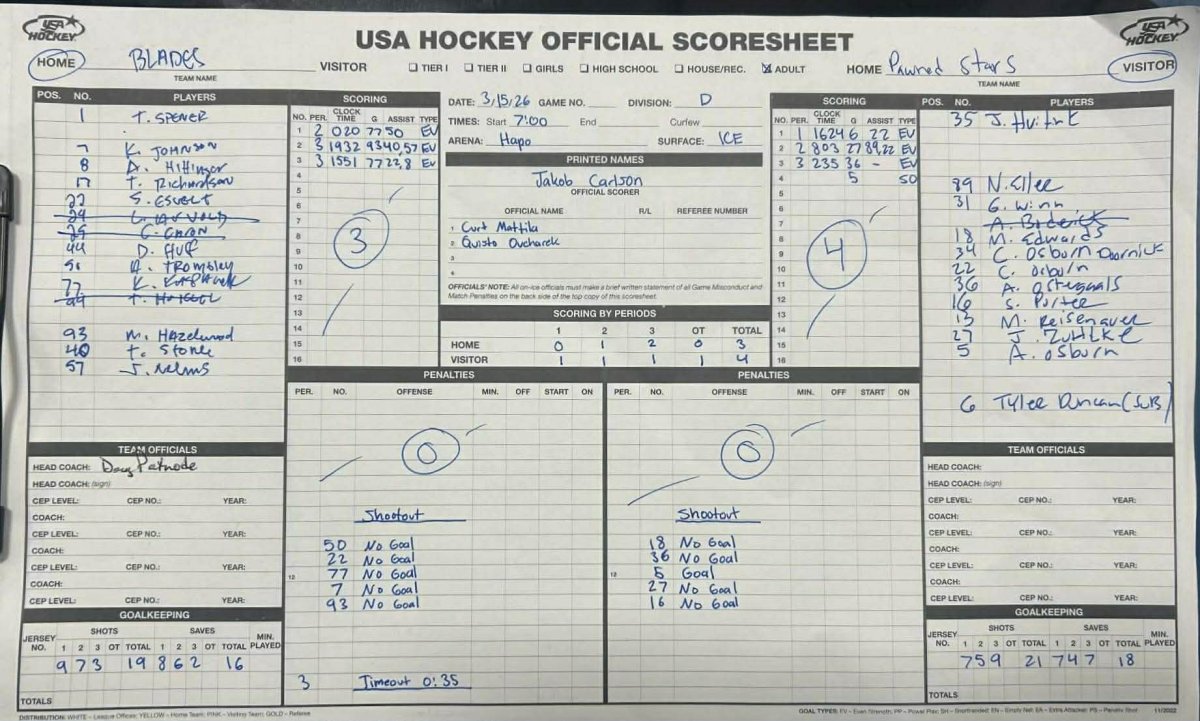 USA HOCKEY
USA HOCKEY OFFICIAL SCORESHEET
USA HOCKEY
HOME BLADES VISITOR TIER I TIER II GIRLS HIGH SCHOOL HOUSE/REC. ADULT HOME Pawned Stars VISITOR
TEAM NAME TEAM NAME
POS. NO. PLAYERS
1 T. SPENER
7 K. JOHNSON
8 A. Hittinger
17 T. Richardson
22 S. ESVELT
29
25 C. CARON
44 D. Huff
50 A. TROMBLEY
77 K.
99
93 M. Hazelwood
40 T. Stone
57 J. Nelms
TEAM OFFICIALS
HEAD COACH: Doug Patnode
HEAD COACH: (sign)
CEP LEVEL: CEP NO.: YEAR:
COACH:
CEP LEVEL: CEP NO.: YEAR:
COACH:
CEP LEVEL: CEP NO.: YEAR:
COACH:
CEP LEVEL: CEP NO.: YEAR:
GOALKEEPING
JERSEY NO. SHOTS SAVES MIN. PLAYED
1 2 3 OT TOTAL 1 2 3 OT TOTAL
9 7 3 19 8 6 2 16
TOTALS
SCORING
NO. PER. CLOCK TIME G ASSIST TYPE
1 2 020 77 50 EV
2 3 1932 93 40,57 EV
3 3 1551 77 22,8 EV
4
5
6
7
8
9
10
11
12
13
14
15
16
3
DATE: 3/15/26 GAME NO. DIVISION: D
TIMES: Start 7:00 End Curfew
ARENA: Hapo SURFACE: ICE
PRINTED NAMES
Jakob Carlson
OFFICIAL SCORER
OFFICIAL NAME R/L REFEREE NUMBER
1 Curt Mattila
2 Quisto Ovcharek
3
4
OFFICIALS' NOTE: All on-ice officials must make a brief written statement of all Game Misconduct and
Match Penalties on the back side of the top copy of this scoresheet.
SCORING BY PERIODS
1 2 3 OT TOTAL
HOME 0 1 2 0 3
VISITOR 1 1 1 1 4
SCORING
NO. PER. CLOCK TIME G ASSIST TYPE
1 1 1624 6 22 EV
2 2 803 27 89,22 EV
3 3 235 36 - EV
4 5 SO
5
6
7
8
9
10
11
12
13
14
15
16
4
PENALTIES
PER. NO. OFFENSE MIN. OFF START ON
0
Shootout
50 No Goal
22 No Goal
12 77 No Goal
7 No Goal
93 No Goal
3 Timeout 0:35
PENALTIES
PER. NO. OFFENSE MIN. OFF START ON
0
Shootout
18 No Goal
36 No Goal
12 5 Goal
27 No Goal
16 No Goal
POS. NO. PLAYERS
35 J.
89 N. Ellee
31 G. Winn
A. Broderick
18 M. Edwards
34 C. Osburn Doornick
22 C. Osburn
36 A.
16 S. Porter
13 M. Reisenauer
27 J. Zuhlke
5 A. Osburn
6 Tyler Duncan (SUB)
TEAM OFFICIALS
HEAD COACH:
HEAD COACH: (sign)
CEP LEVEL: CEP NO.: YEAR:
COACH:
CEP LEVEL: CEP NO.: YEAR:
COACH:
CEP LEVEL: CEP NO.: YEAR:
COACH:
CEP LEVEL: CEP NO.: YEAR:
GOALKEEPING
JERSEY NO. SHOTS SAVES MIN. PLAYED
1 2 3 OT TOTAL 1 2 3 OT TOTAL
7 5 9 21 7 4 7 18
TOTALS
DISTRIBUTION: WHITE – League Officer, YELLOW – Home Team, PINK – Visiting Team, GOLD – Referee
GOAL TYPES: EV – Even Strength, PP – Power Play, SH – Shorthanded, EN – Empty Net, EA – Extra Attacker, PS – Penalty Shot 11/2022